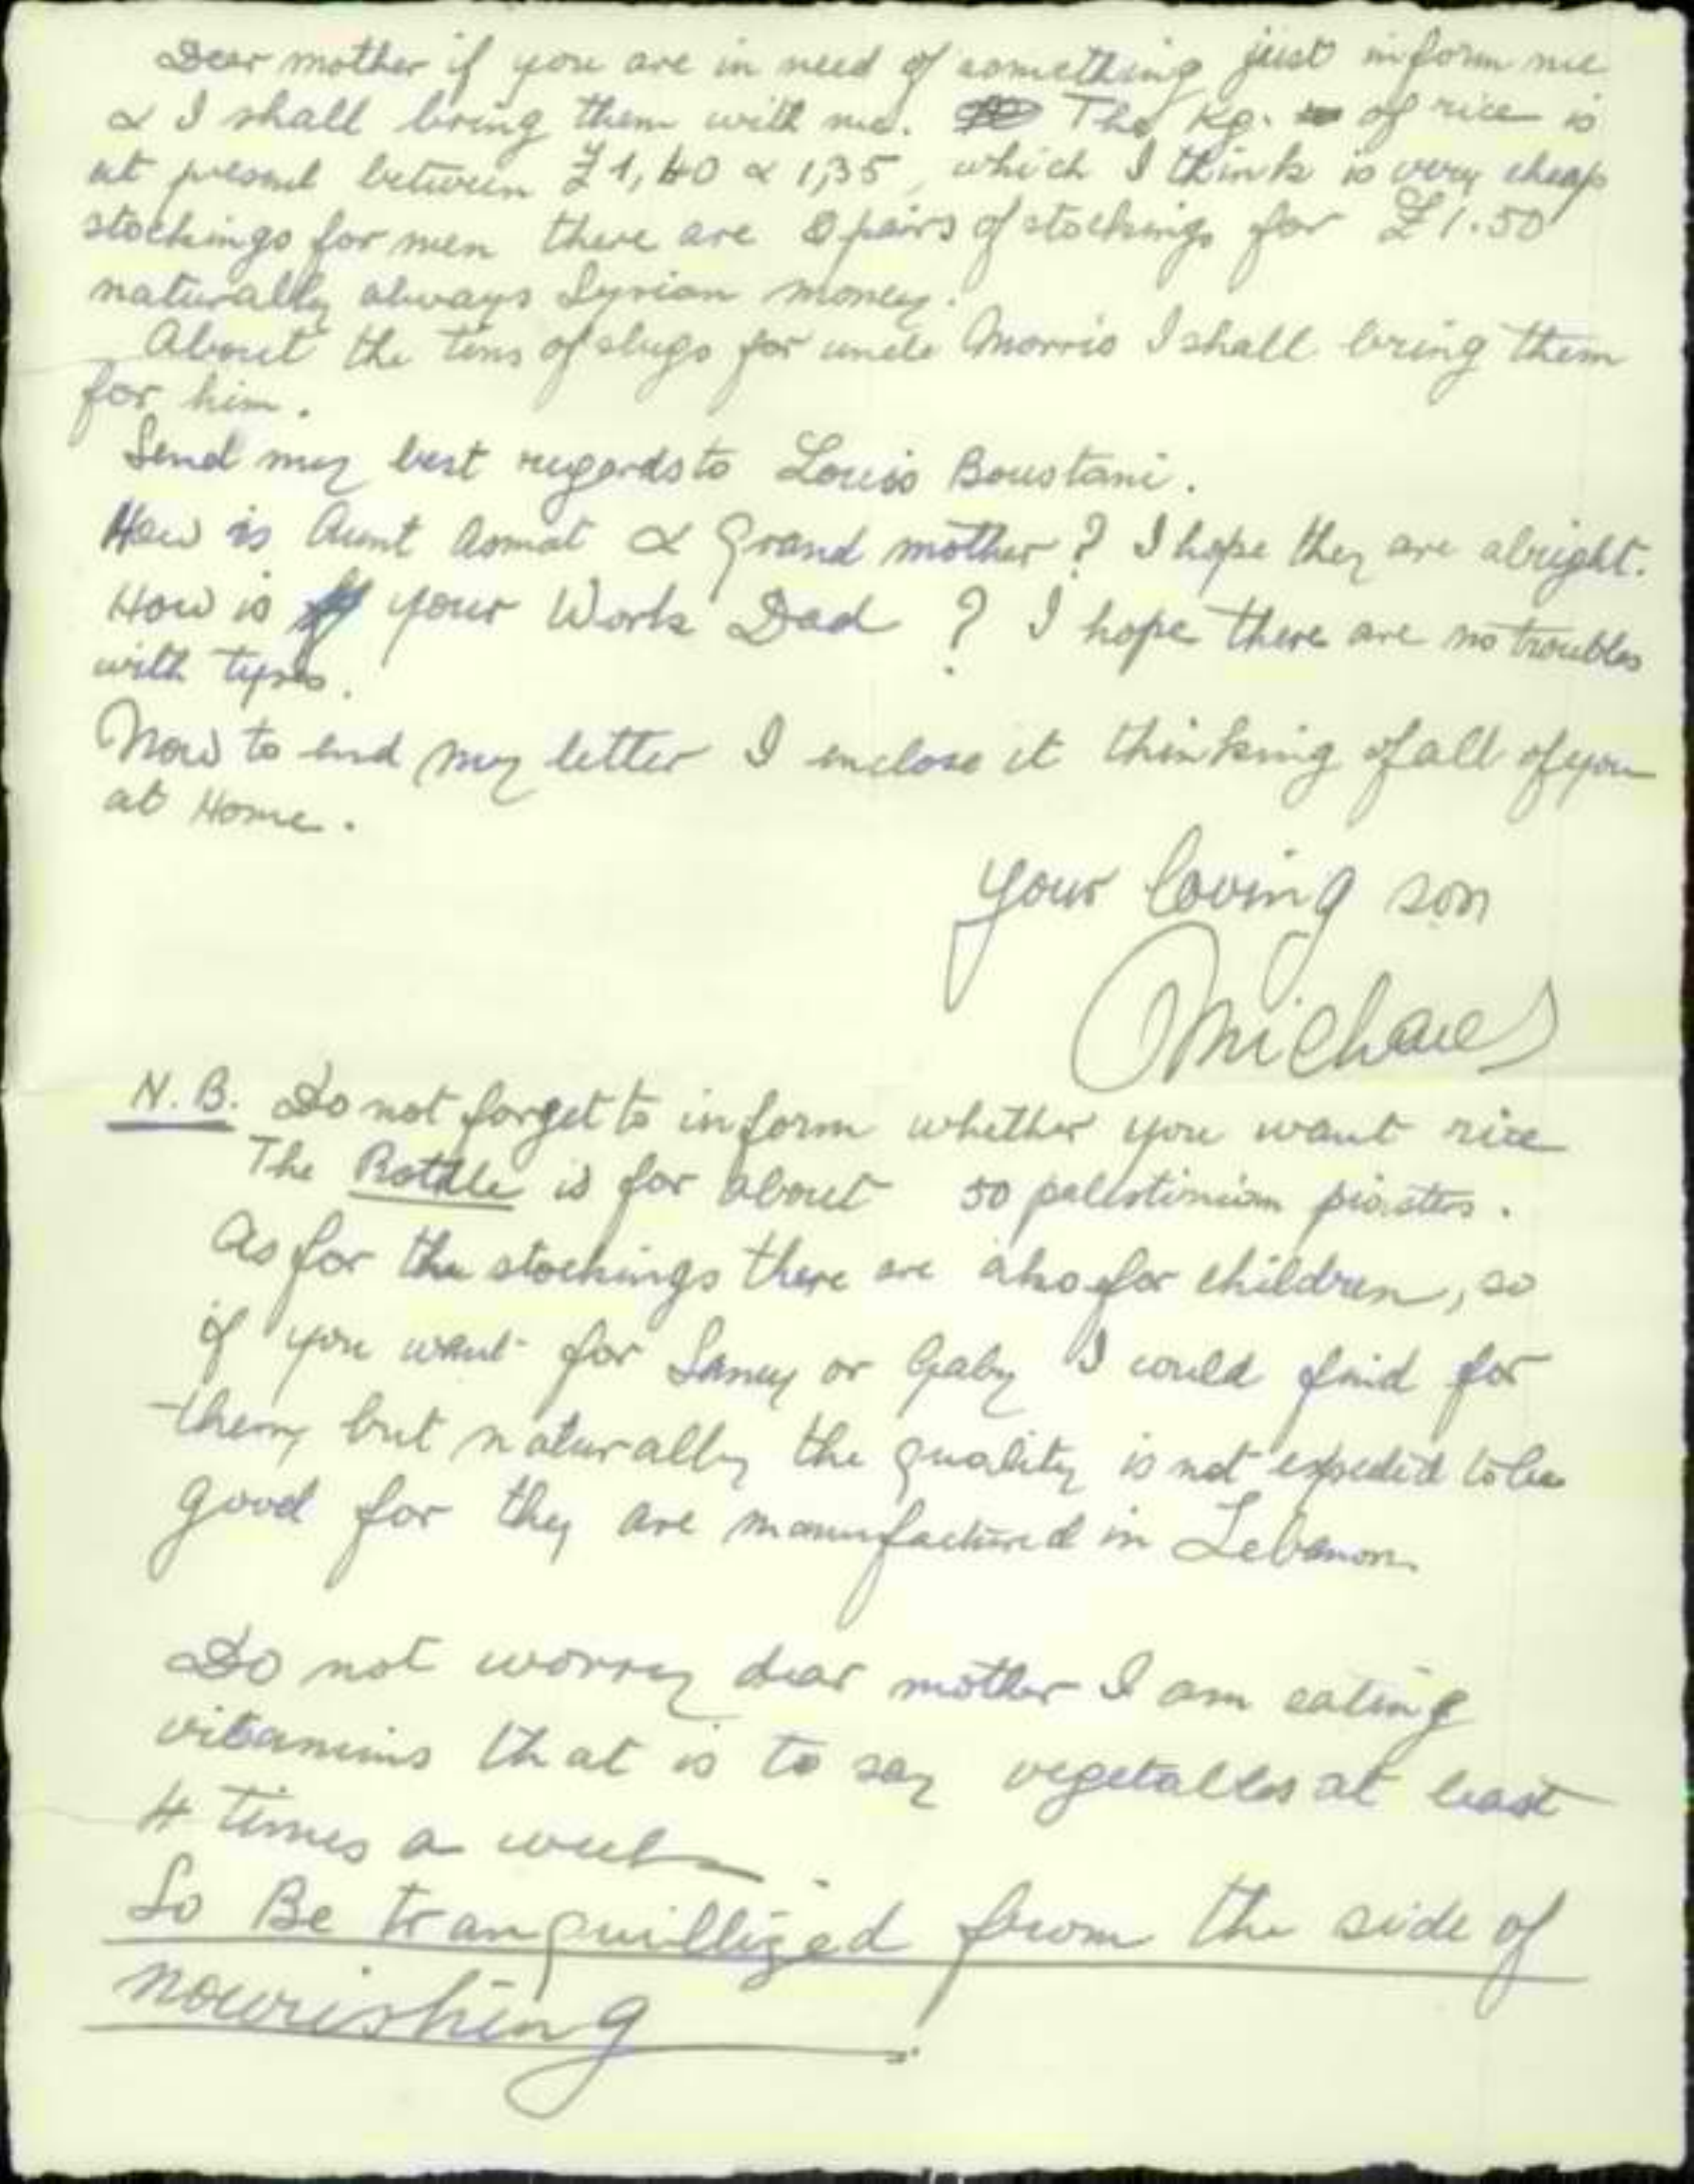 Dear mother if you are in need of something just inform me
& I shall bring them with me. The Kg. of rice is
at present between £1,40 & 1,35, which I think is very cheap
stockings for men there are pairs of stockings for £1.50
naturally always Syrian money.
About the tins of slugs for uncle Morris I shall bring them
for him.
Send my best regards to Louis Boustani.
How is Aunt Asmat & Grand mother? I hope they are alright.
How is your Work Dad ? I hope there are no troubles
with tyres.
Now to end my letter I enclose it thinking of all of you
at Home.
your loving son
Michael
N.B. Do not forget to inform whether you want rice
The Rottle is for about 50 palestinian piastres.
As for the stockings there are also for children, so
if you want for Samy or Gaby I could find for
them, but naturally the quality is not expected to be
good for they are manufactured in Lebanon.
Do not worry dear mother I am eating
vitamins that is to say vegetables at least
4 times a week.
So Be tranquillized from the side of
nourishing.